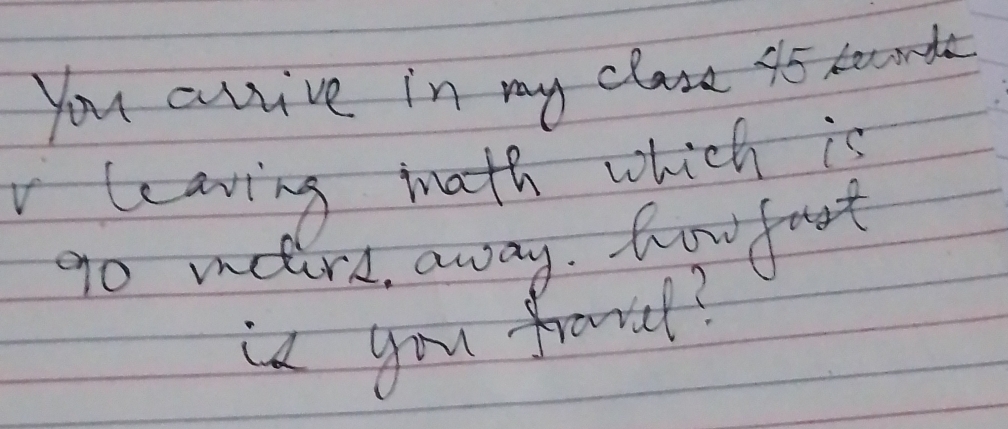 You arrive in my class 45 seconds
r leaving math which is
90 meters. away. how fast
is you travel?